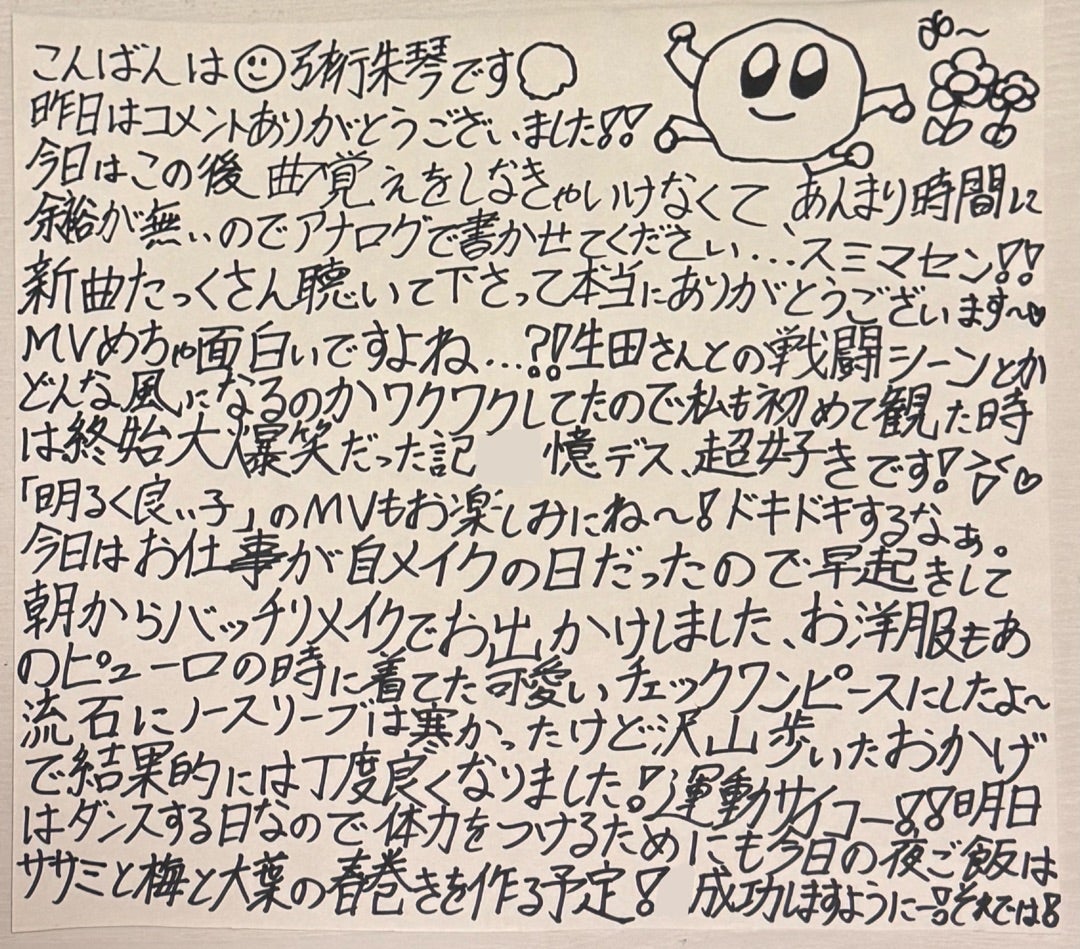 こんばんは 弦術朱琴です
昨日はコメントありがとうございました!!
今日はこの後 曲覚えをしなきゃいけなくて、あんまり時間に
余裕が無いのでアナログで書かせてください...、スミマセン!!
新曲たっくさん聴いて下さって本当にありがとうございます〜♡
MVめちゃ面白いですよね...?!生田さんとの戦闘シーンとか
どんな風になるのかワクワクしてたので私も初めて観た時
は終始大爆笑だった記 憶デス、超好きです!♡
「明るく良い子」のMVもお楽しみにね〜!ドキドキするなぁ。
今日はお仕事が自メイクの日だったので早起きして
朝からバッチリメイクでお出かけしました、お洋服もあ
のピューロの時に着てた可愛いチェックワンピースにしたよ〜
流石にノースリーブは寒かったけど沢山歩いたおかげ
で結果的には丁度良くなりました!運動サイコー!!明日
はダンスする日なので体力をつけるためにも今日の夜ご飯は
ササミと梅と大葉の春巻きを作る予定! 成功しますように!それでは!